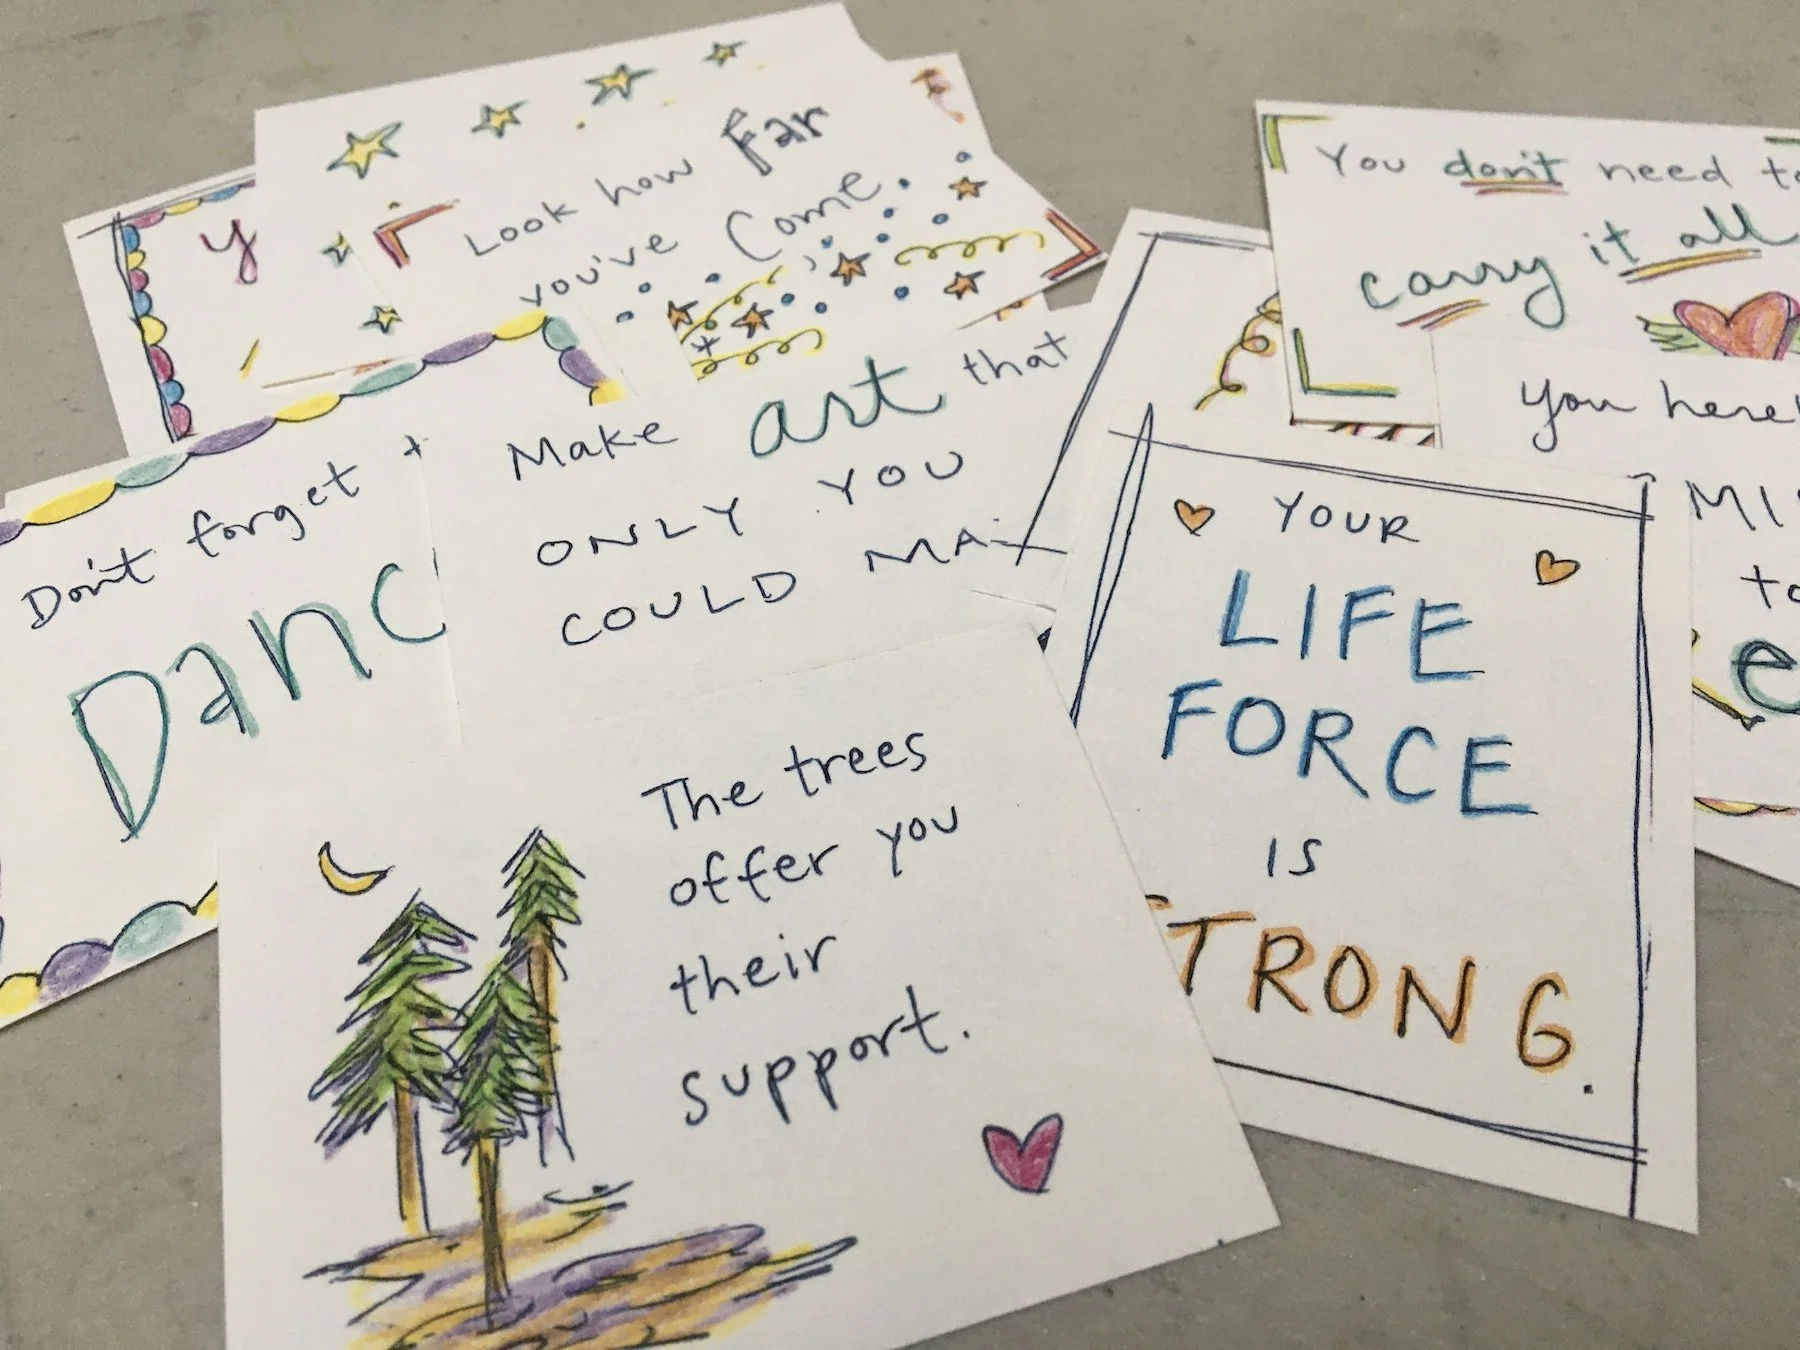 y
Look how Far
you've Come.
You don't need to
carry it all
Don't forget
Make art that
ONLY YOU
COULD
You here!
YOUR
LIFE
FORCE
IS
TRONG.
The trees
offer you
their
support.